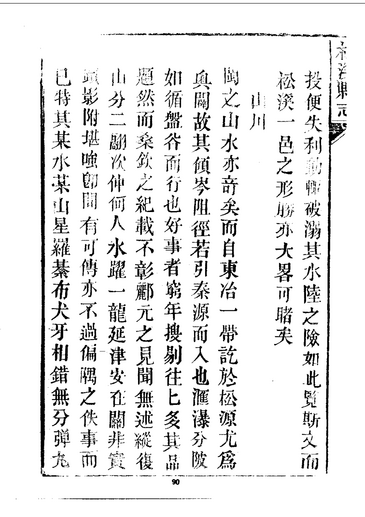 松溪縣志
投便失利動輒破溺其水陸之險如此覽斯文而
松溪一邑之形勝亦大畧可睹矣
山川
閩之山水亦竒矣而自東冶一帶訖於松源尤爲
奥闢故其傾岑阻徑若引秦源而入也滙瀑分陂
如循盤谷而行也好事者窮年搜剔往上多其品
題然而桑欽之紀載不彰酈元之見聞無述縱復
山分二翩次仲何人水躍一龍延津安在關非實
影附堪嗤卽間有可傳亦不過偏隅之佚事而
已特其某水某山星羅棊布犬牙相錯無分彈丸
90